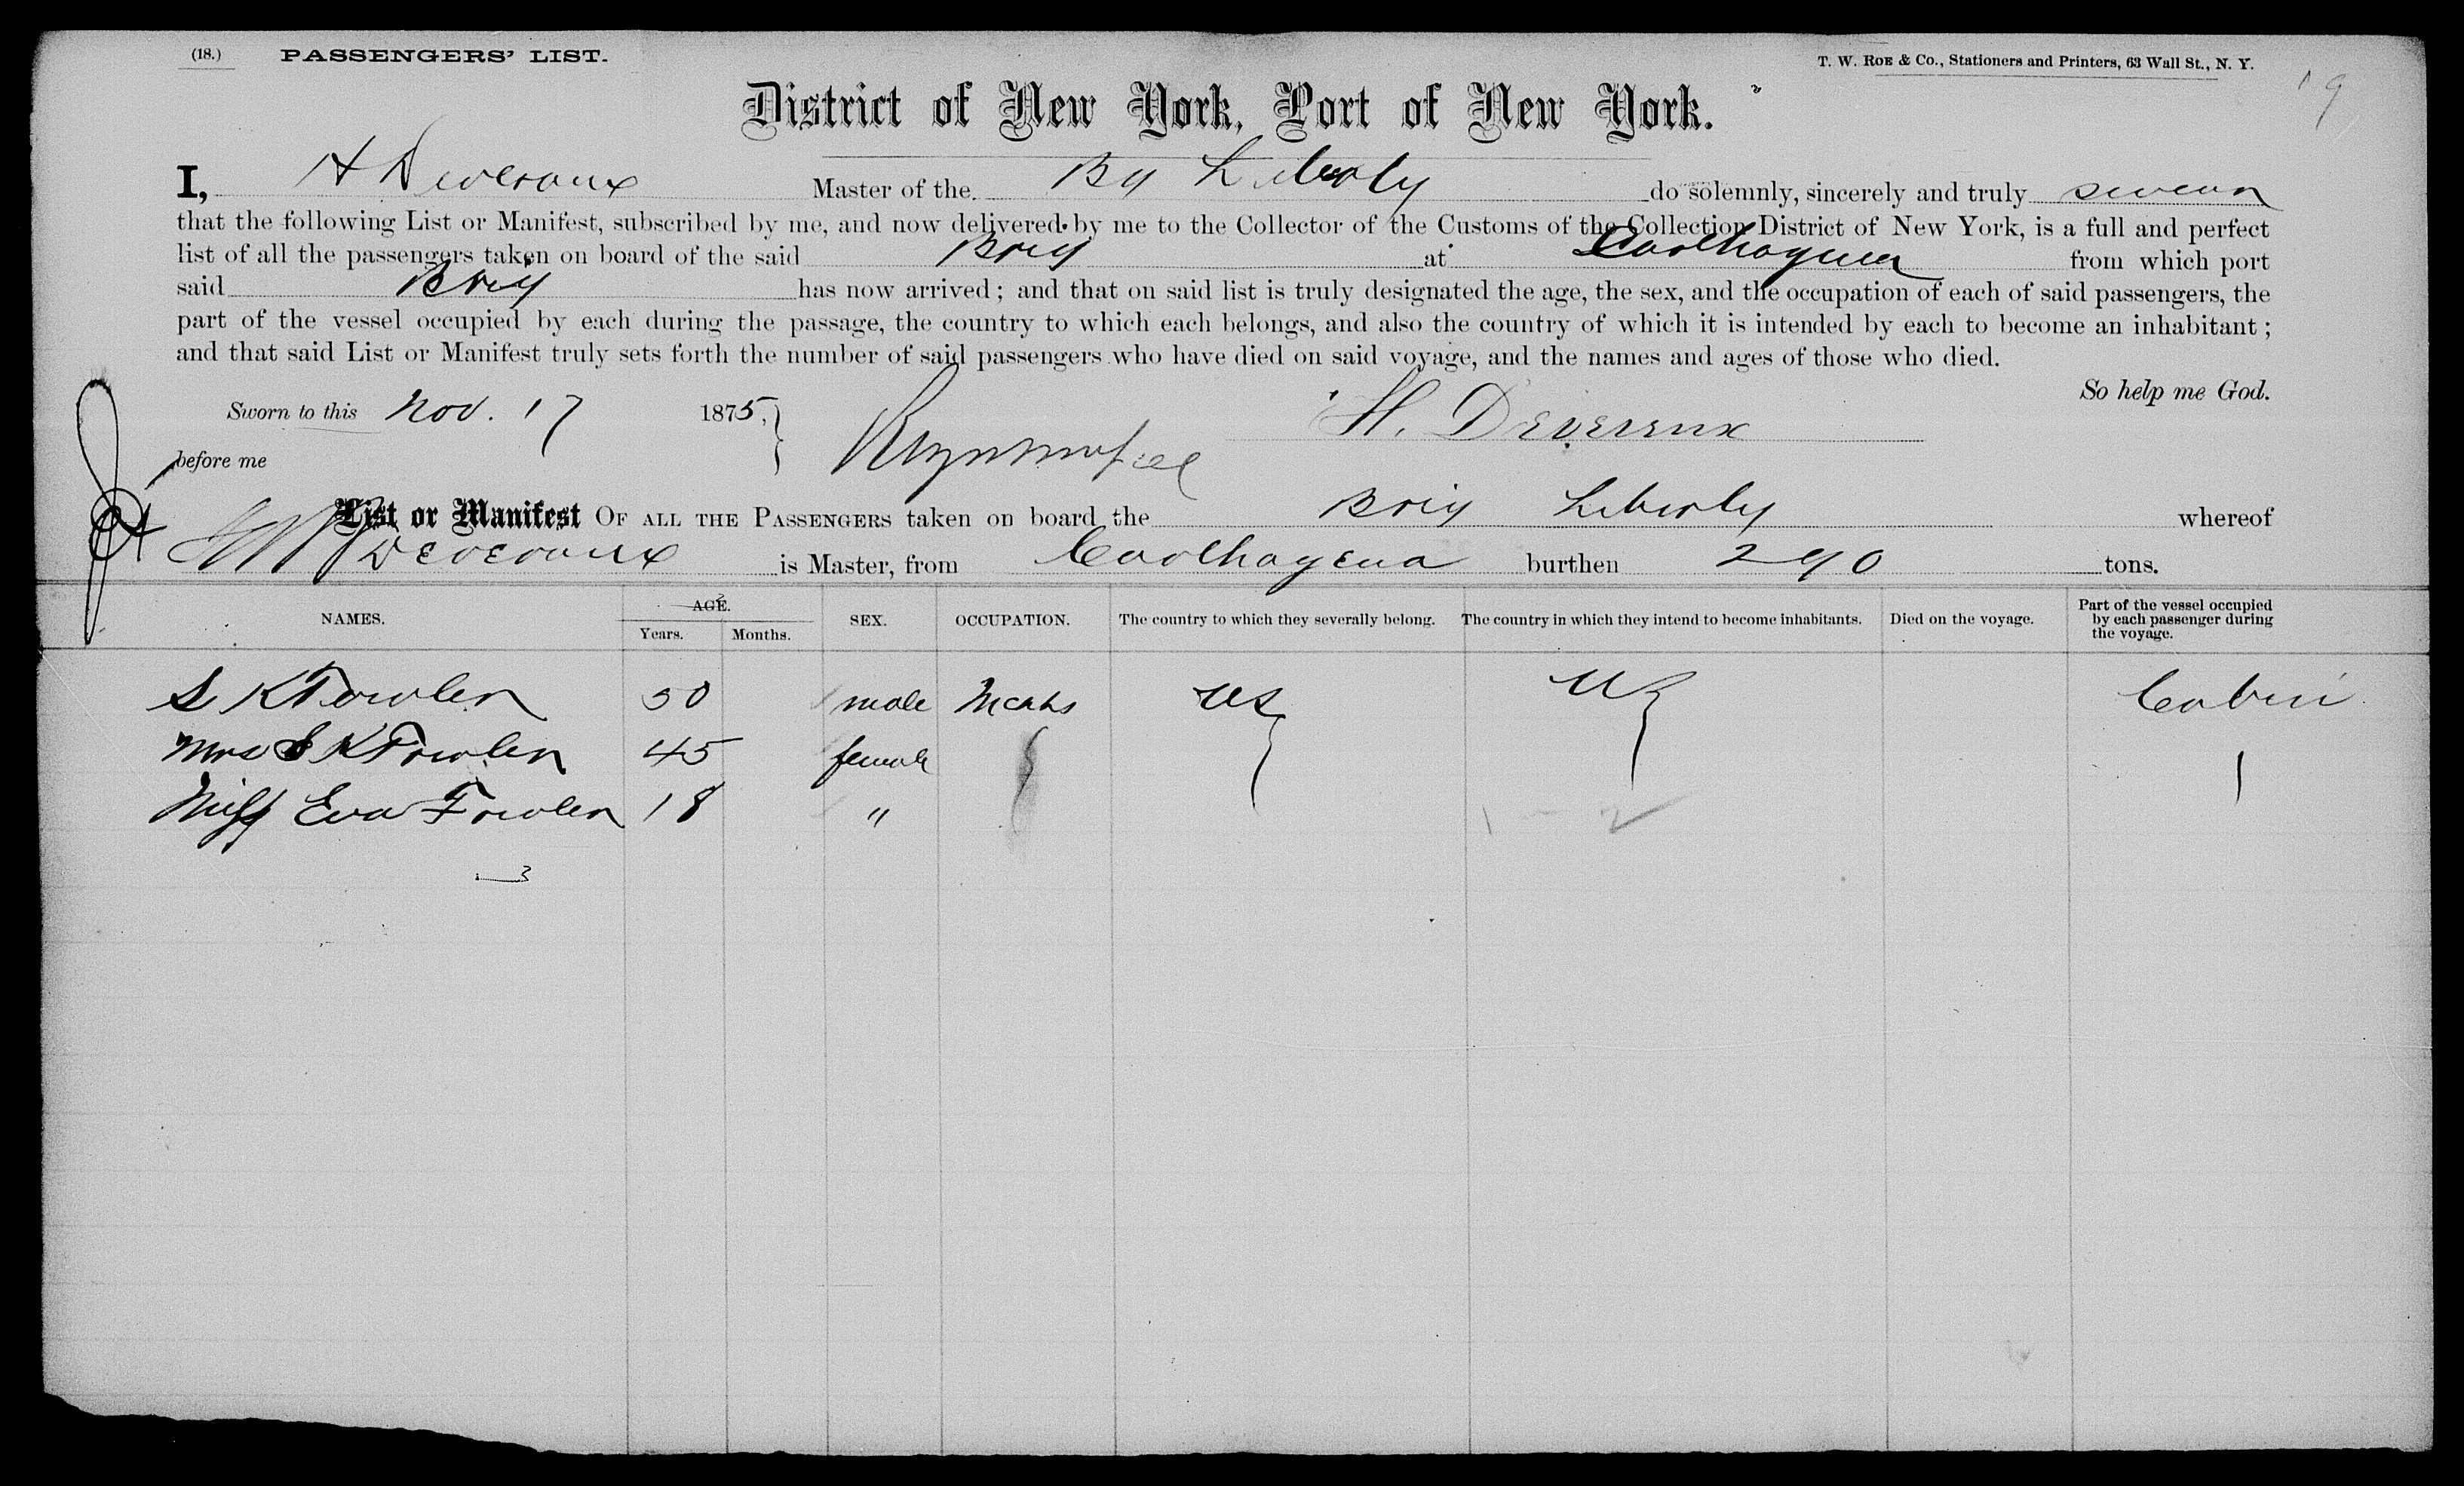 (18.) PASSENGERS' LIST. T. W. ROE & Co., Stationers and Printers, 63 Wall St., N. Y.
19
District of New York, Port of New York.
I, H Devereaux Master of the Bg Liberty do solemnly, sincerely and truly swear
that the following List or Manifest, subscribed by me, and now delivered by me to the Collector of the Customs of the Collection District of New York, is a full and perfect
list of all the passengers taken on board of the said Brig at Carthagena from which port
said Brig has now arrived; and that on said list is truly designated the age, the sex, and the occupation of each of said passengers, the
part of the vessel occupied by each during the passage, the country to which each belongs, and also the country of which it is intended by each to become an inhabitant;
and that said List or Manifest truly sets forth the number of said passengers who have died on said voyage, and the names and ages of those who died.
So help me God.
Sworn to this Nov. 17 1875, H. Devereux
before me
List or Manifest OF ALL THE PASSENGERS taken on board the Brig Liberty whereof
Devereaux is Master, from Carthagena burthen 290 tons.
NAMES. AGE. Years. Months. SEX. OCCUPATION. The country to which they severally belong. The country in which they intend to become inhabitants. Died on the voyage. Part of the vessel occupied by each passenger during the voyage.
S K Fowler 50 male US US Cabin
Mrs S K Fowler 45 female
Miss Eva Fowler 18 "
1 - 2
3